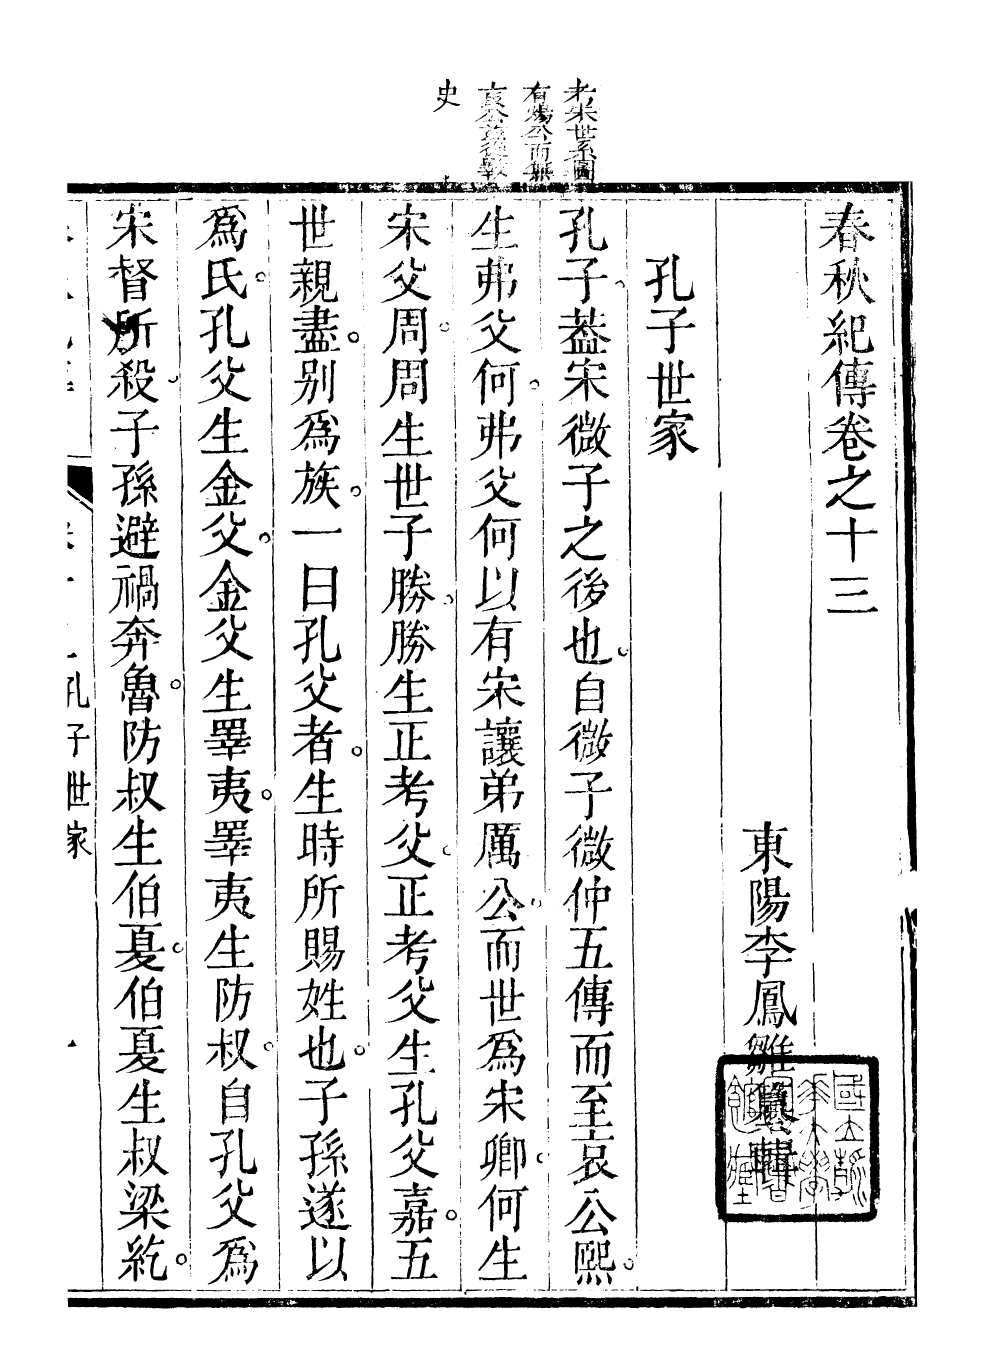 考宋世系圖
有煬公而無
哀公茲從轂
史
春秋紀傳卷之十三
東陽李鳳雛纂輯
孔子世家
孔子。葢宋微子之後也。自微子微仲五傳而至哀公熙。
生弗父何。弗父何以有宋讓弟厲公。而世為宋卿。何生
宋父周。周生世子勝。勝生正考父。正考父生孔父嘉。五
世親盡。别為族。一曰孔父者。生時所賜姓也。子孫遂以
為氏。孔父生金父。金父生睪夷。睪夷生防叔。自孔父為
宋督所殺。子孫避禍奔魯。防叔生伯夏。伯夏生叔梁紇。
孔子世家